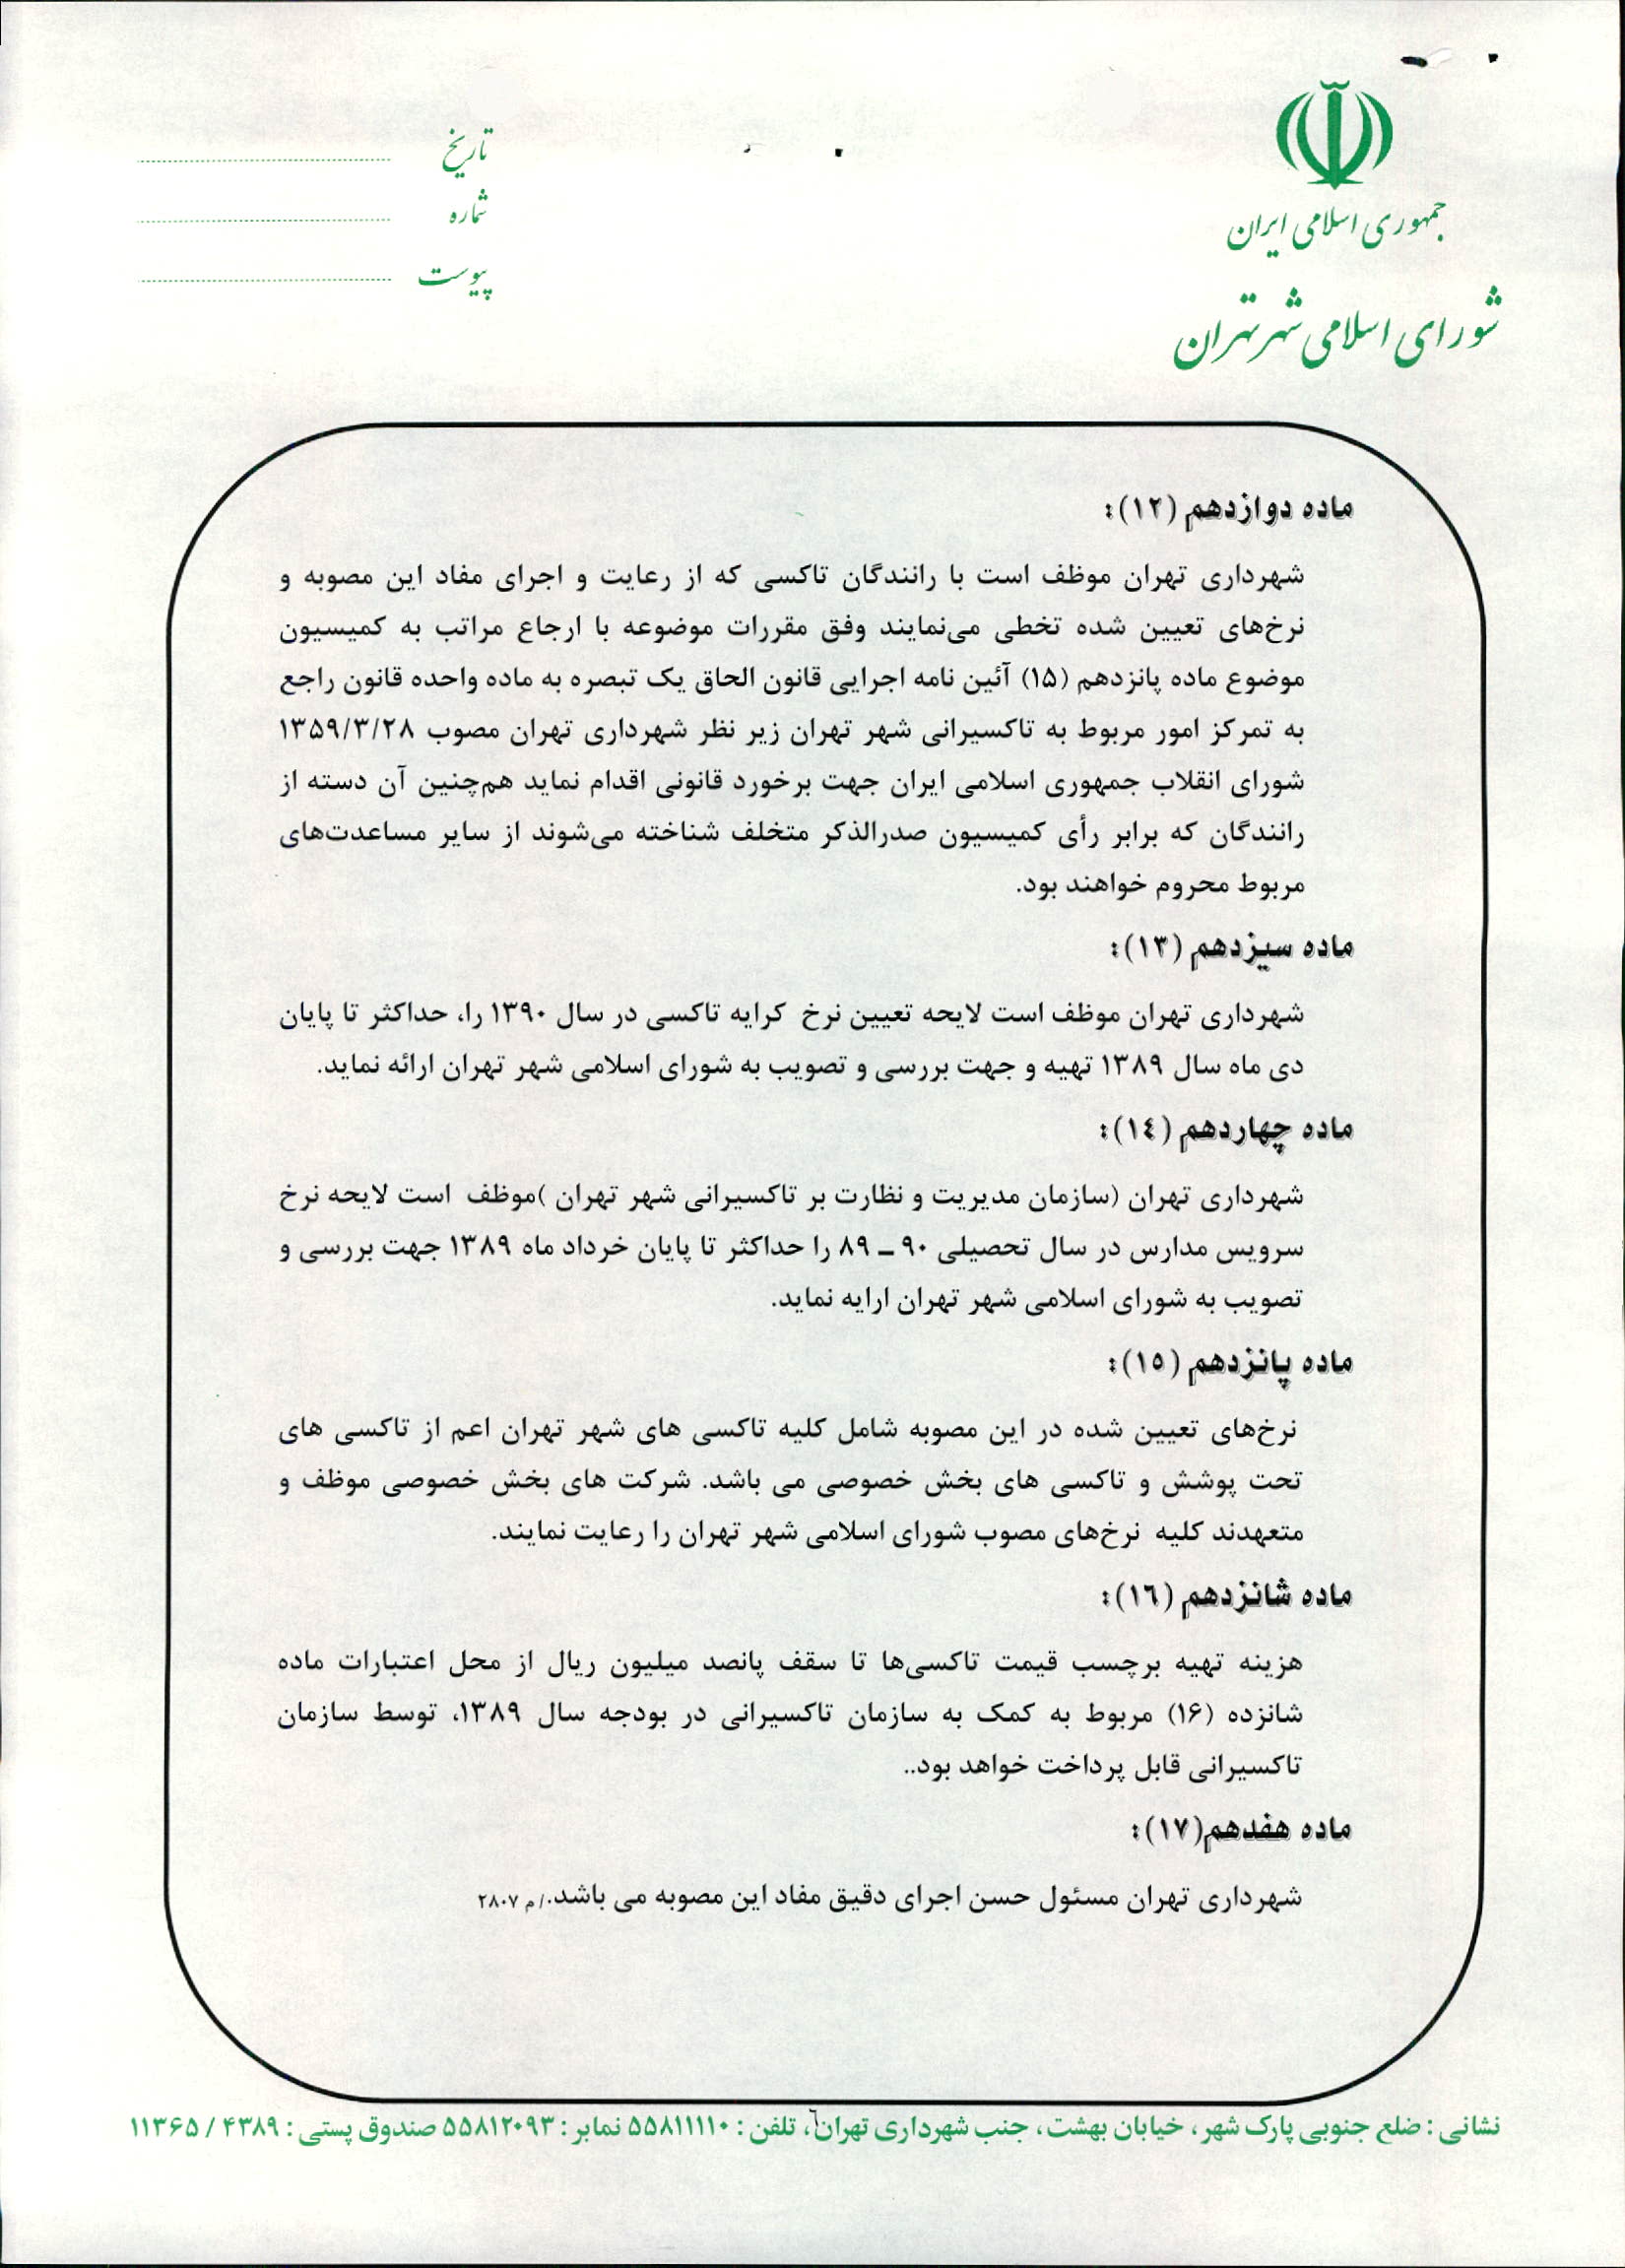 جمهوری اسلامی ایران
شورای اسلامی شهر تهران
تاریخ
شماره
پیوست
ماده دوازدهم (۱۲):
شهرداری تهران موظف است با رانندگان تاکسی که از رعایت و اجرای مفاد این مصوبه و
نرخ‌های تعیین شده تخطی می‌نمایند وفق مقررات موضوعه با ارجاع مراتب به کمیسیون
موضوع ماده پانزدهم (۱۵) آئین نامه اجرایی قانون الحاق یک تبصره به ماده واحده قانون راجع
به تمرکز امور مربوط به تاکسیرانی شهر تهران زیر نظر شهرداری تهران مصوب ۱۳۵۹/۳/۲۸
شورای انقلاب جمهوری اسلامی ایران جهت برخورد قانونی اقدام نماید هم‌چنین آن دسته از
رانندگان که برابر رأی کمیسیون صدرالذکر متخلف شناخته می‌شوند از سایر مساعدت‌های
مربوط محروم خواهند بود.
ماده سیزدهم (۱۳):
شهرداری تهران موظف است لایحه تعیین نرخ کرایه تاکسی در سال ۱۳۹۰ را، حداکثر تا پایان
دی ماه سال ۱۳۸۹ تهیه و جهت بررسی و تصویب به شورای اسلامی شهر تهران ارائه نماید.
ماده چهاردهم (١٤):
شهرداری تهران (سازمان مدیریت و نظارت بر تاکسیرانی شهر تهران )موظف است لایحه نرخ
سرویس مدارس در سال تحصیلی ۹۰ ـ ۸۹ را حداکثر تا پایان خرداد ماه ۱۳۸۹ جهت بررسی و
تصویب به شورای اسلامی شهر تهران ارایه نماید.
ماده پانزدهم (١٥):
نرخ‌های تعیین شده در این مصوبه شامل کلیه تاکسی های شهر تهران اعم از تاکسی های
تحت پوشش و تاکسی های بخش خصوصی می باشد. شرکت های بخش خصوصی موظف و
متعهدند کلیه نرخ‌های مصوب شورای اسلامی شهر تهران را رعایت نمایند.
ماده شانزدهم (١٦):
هزینه تهیه برچسب قیمت تاکسی‌ها تا سقف پانصد میلیون ریال از محل اعتبارات ماده
شانزده (۱۶) مربوط به کمک به سازمان تاکسیرانی در بودجه سال ۱۳۸۹، توسط سازمان
تاکسیرانی قابل پرداخت خواهد بود..
ماده هفدهم(۱۷):
شهرداری تهران مسئول حسن اجرای دقیق مفاد این مصوبه می باشد./ م ۲۸۰۷
٦
نشانی : ضلع جنوبی پارک شهر، خیابان بهشت، جنب شهرداری تهران، تلفن : ۵۵۸۱۱۱۱۰ نمابر : ۵۵۸۱۲۰۹۳ صندوق پستی : ۴۳۸۹ / ۱۱۳۶۵